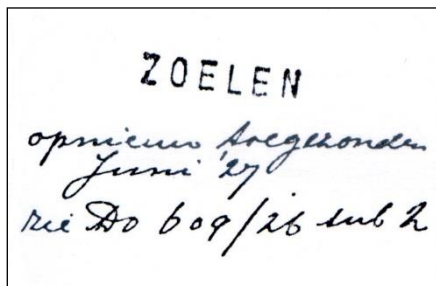 ZOELEN
opnieuw toegezonden
Juni '27
zie Do 609/26 sub 2